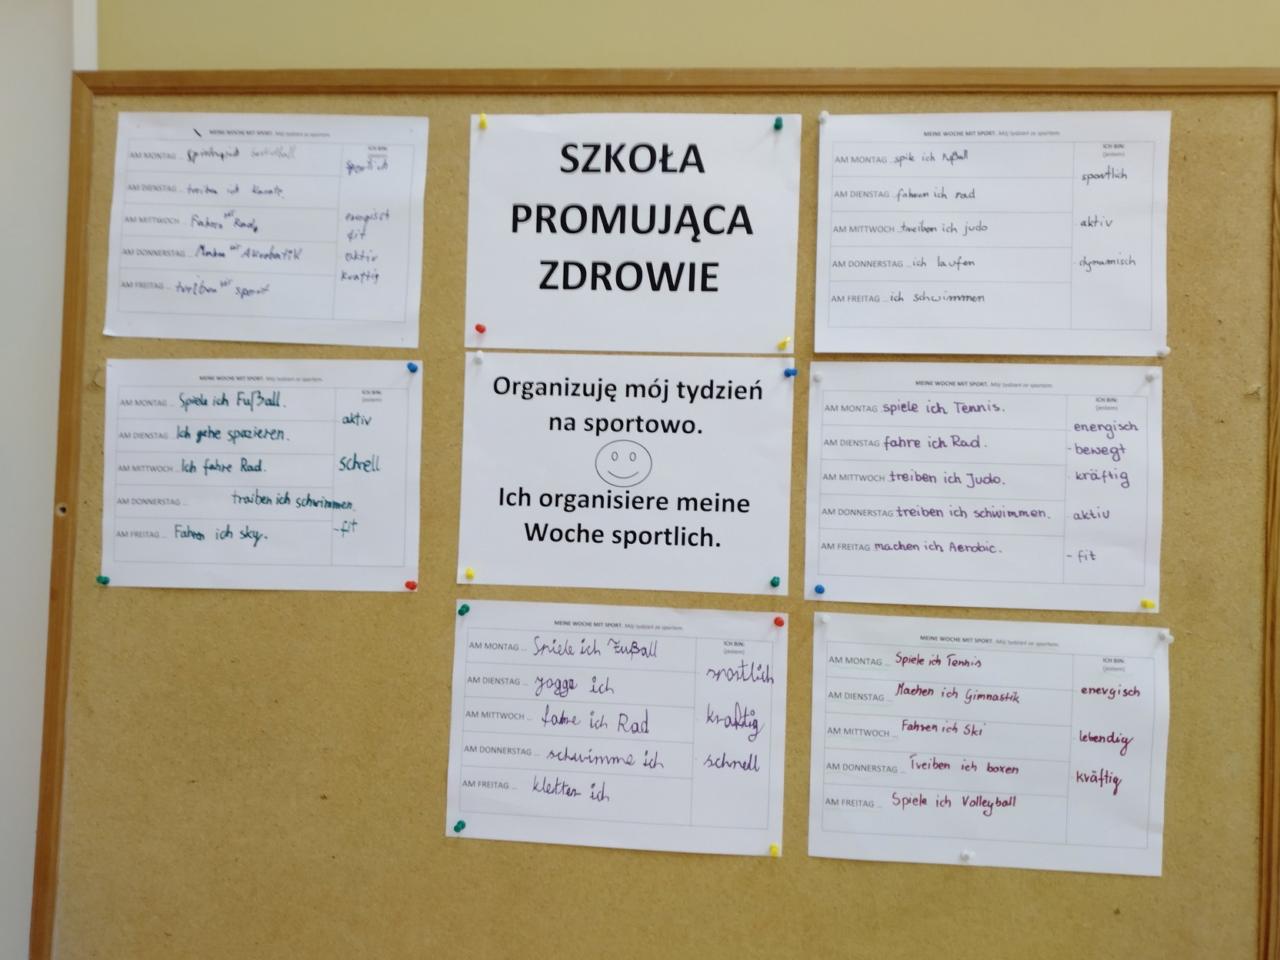 MEINE WOCHE MIT SPORT. Mój tydzień ze sportem.
AM MONTAG ...
ICH BIN:
(jestem)
sportlich
AM DIENSTAG ... treiben ich Karate
AM MITTWOCH ... Fahren wir Rad
energisch
fit
AM DONNERSTAG ... Machen wir Akrobatik
aktiv
kraftig
AM FREITAG ... treiben wir sport
SZKOŁA
PROMUJĄCA
ZDROWIE
MEINE WOCHE MIT SPORT. Mój tydzień ze sportem.
AM MONTAG ... spile ich Fußball
ICH BIN:
(jestem)
sportlich
AM DIENSTAG ... fahren ich rad
AM MITTWOCH ... treiben ich judo
aktiv
AM DONNERSTAG ... ich laufen
dynamisch
AM FREITAG ... ich schwimmen
MEINE WOCHE MIT SPORT. Mój tydzień ze sportem.
AM MONTAG ... Spiele ich Fußball.
ICH BIN:
(jestem)
aktiv
AM DIENSTAG ... Ich gehe spazieren.
AM MITTWOCH ... Ich fahre Rad.
schnell
AM DONNERSTAG ... traiben ich schwimmen
AM FREITAG ... Fahren ich sky.
-fit
Organizuję mój tydzień
na sportowo.
Ich organisiere meine
Woche sportlich.
MEINE WOCHE MIT SPORT. Mój tydzień ze sportem.
AM MONTAG spiele ich Tennis.
ICH BIN:
(jestem)
energisch
AM DIENSTAG fahre ich Rad.
- bewegt
AM MITTWOCH treiben ich Judo.
- kräftig
AM DONNERSTAG treiben ich schwimmen.
- aktiv
AM FREITAG machen ich Aerobic.
- fit
MEINE WOCHE MIT SPORT. Mój tydzień ze sportem.
AM MONTAG ... Spiele ich Fußball
ICH BIN:
(jestem)
sportlich
AM DIENSTAG ... jogge ich
AM MITTWOCH ... fahre ich Rad
kraftig
AM DONNERSTAG ... schwimme ich
schnell
AM FREITAG ... kletter ich
MEINE WOCHE MIT SPORT. Mój tydzień ze sportem.
AM MONTAG ... Spiele ich Tennis
ICH BIN:
(jestem)
energisch
AM DIENSTAG ... Machen ich Gimnastik
AM MITTWOCH ... Fahren ich Ski
lebendig
AM DONNERSTAG ... Treiben ich boxen
kräftig
AM FREITAG ... Spiele ich Volleyball